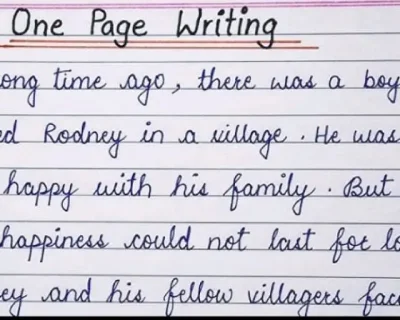 One Page Writing
ong time ago, there was a boy
ed Rodney in a village. He was
happy with his family. But
happiness could not last for lo
ey and his fellow villagers fac